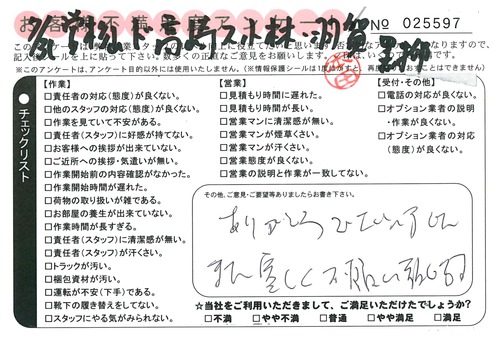 No 025597
チェックリスト
【作業】
□責任者の対応(態度)が良くない。
□他のスタッフの対応(態度)が良くない。
□作業を見ていて不安がある。
□責任者(スタッフ)に好感が持てない。
□お客様への挨拶が出来ていない。
□ご近所への挨拶・気遣いが無い。
□作業開始前の内容確認がなかった。
□作業開始時間が遅れた。
□荷物の取り扱いが雑である。
□お部屋の養生が出来ていない。
□作業時間が長すぎる。
□責任者(スタッフ)に清潔感が無い。
□責任者(スタッフ)が汗くさい。
□トラックが汚い。
□梱包資材が汚い。
□運転が不安(下手)である。
□靴下の履き替えをしてない。
□スタッフにやる気がみられない。
【営業】
□見積もり時間に遅れた。
□見積もり時間が長い。
□営業マンに清潔感が無い。
□営業マンが煙草くさい。
□営業マンが汗くさい。
□営業態度が良くない。
□営業の説明と作業が一致してない。
【受付・その他】
□電話の対応が良くない。
□オプション業者の説明・作業が良くない。
□オプション業者の対応(態度)が良くない。
その他、ご意見・ご要望等ありましたらお書き下さい。
ありがとうございました
また宜しくお願い致します
☆当社をご利用いただきまして、ご満足いただけたでしょうか?
□不満 □やや不満 □普通 □やや満足 □満足